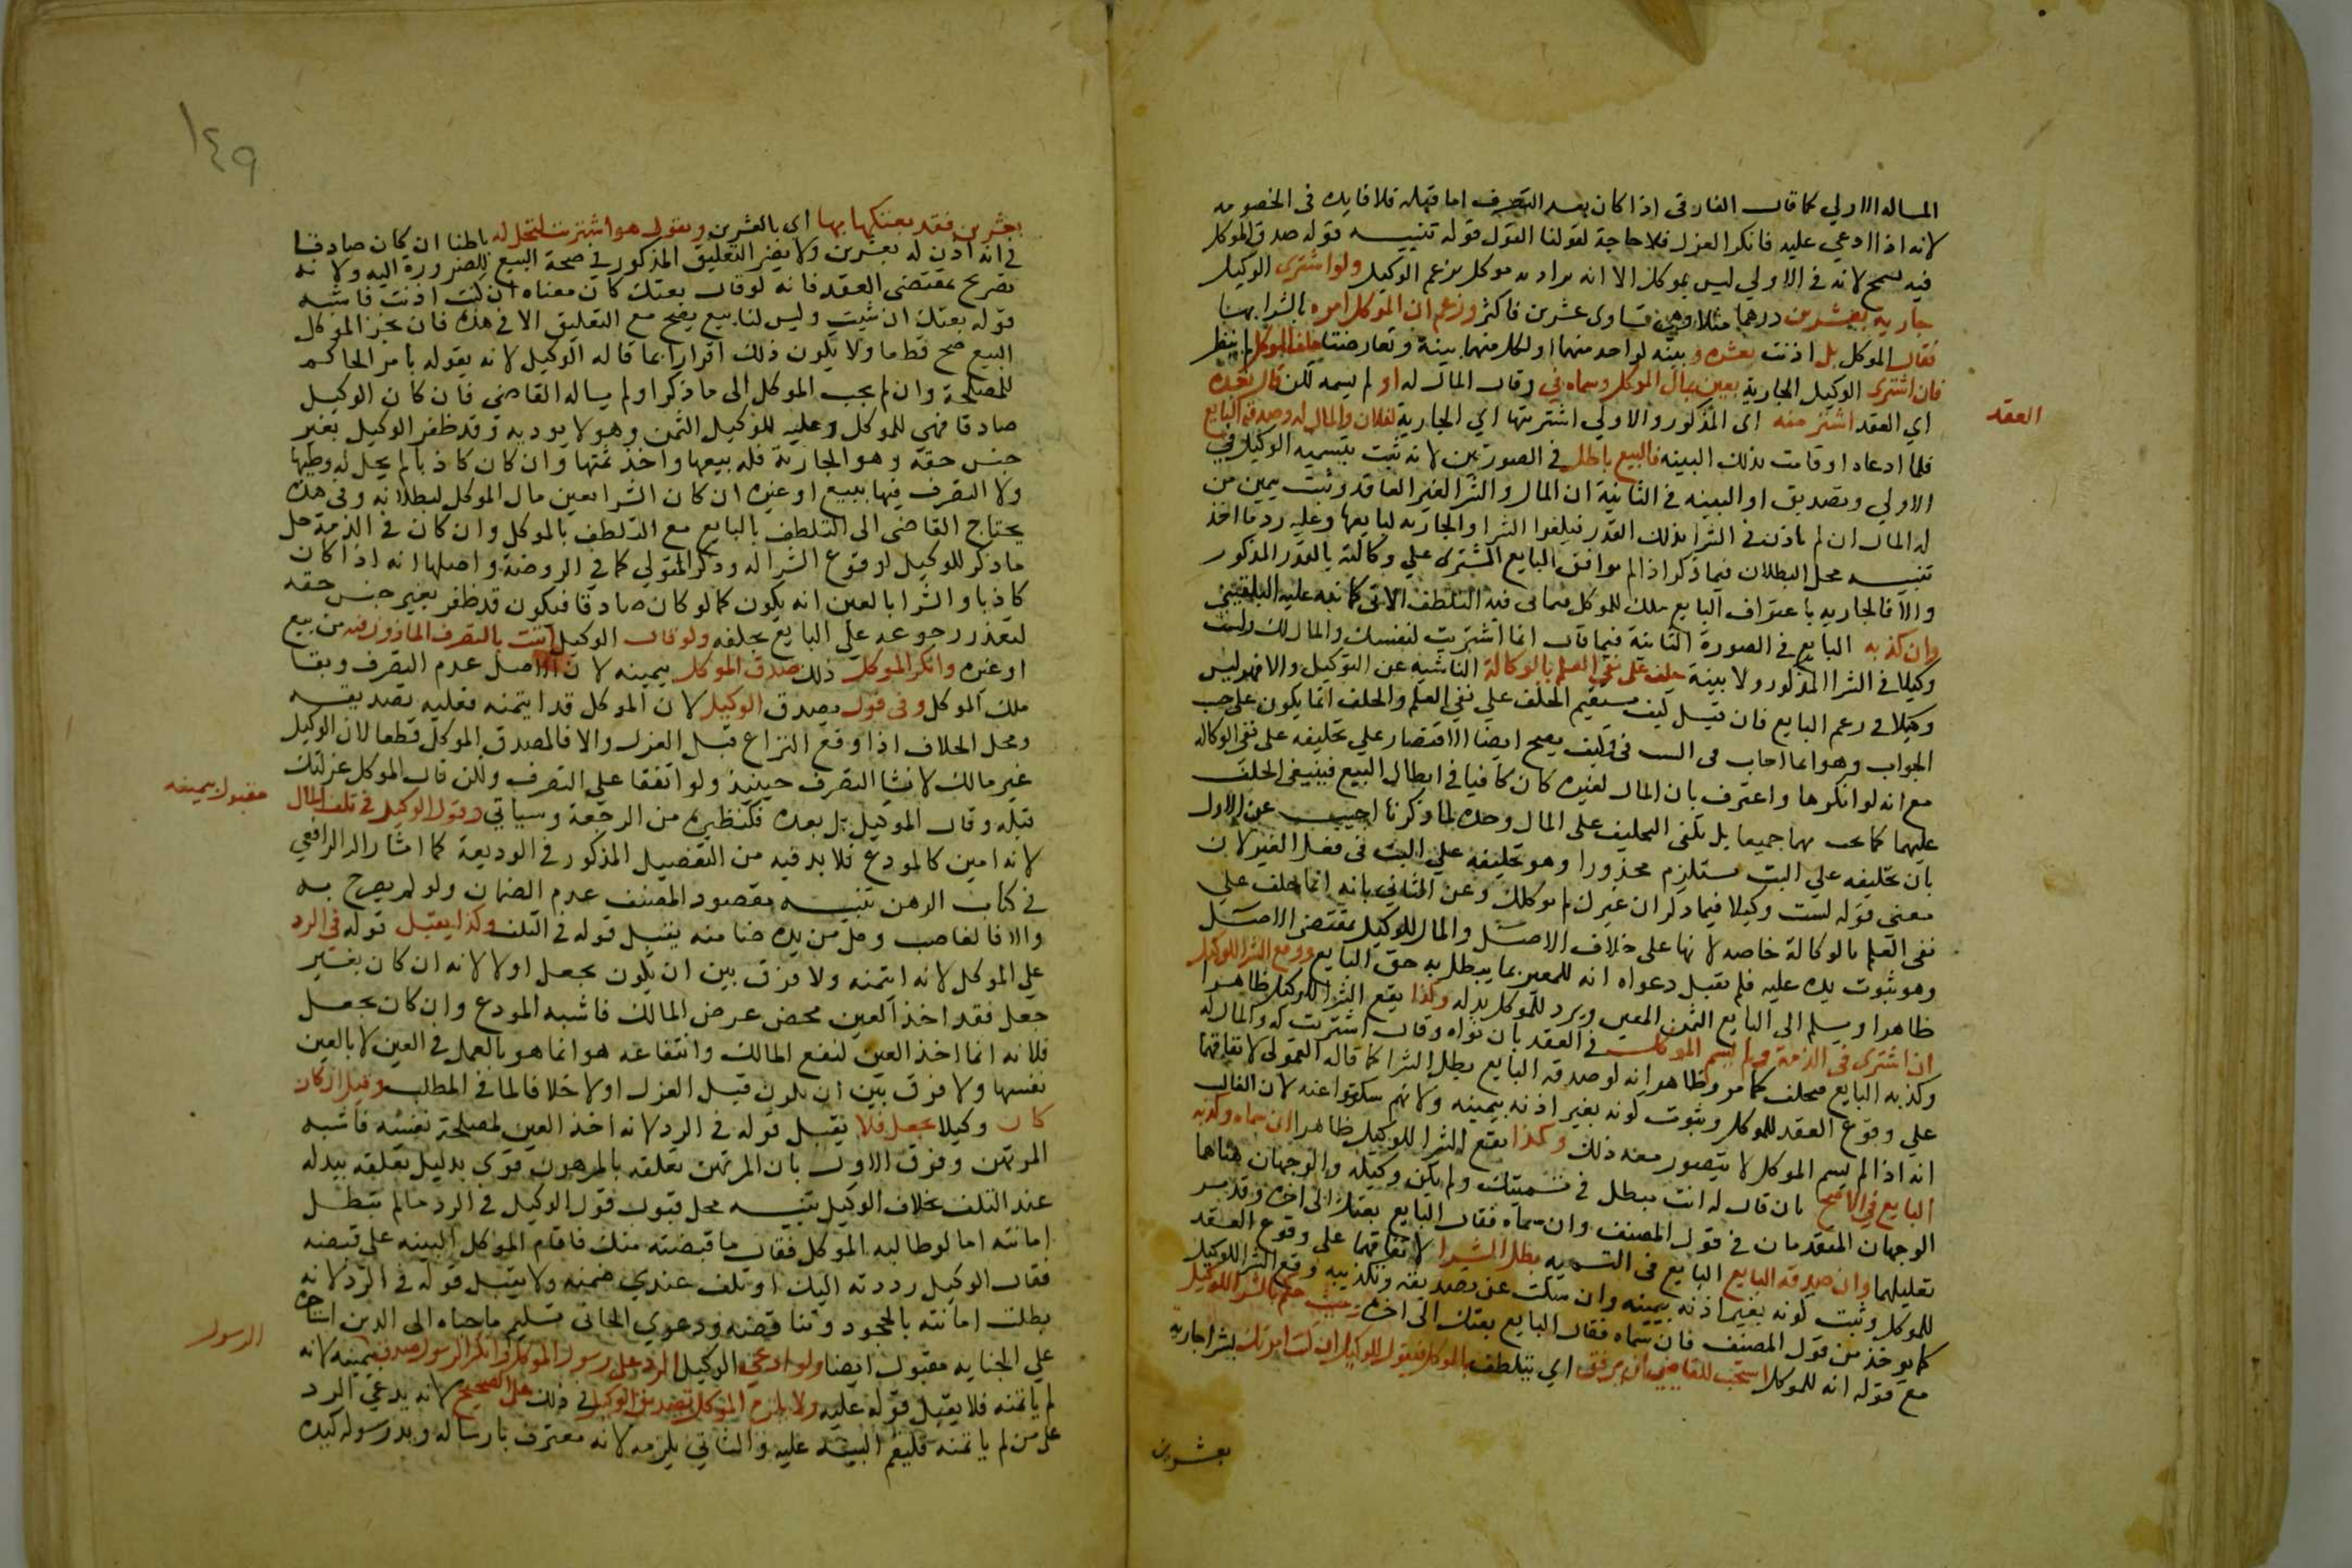 المساله الاولي كما قال الفارقى اذا كان بعد التصرف اما قبله فلا فايده فى الخصومه
لانه اذا ادعي عليه فانكر العزل فلا حاجة لقولنا القول قوله تنبيـــه قوله صدق الموكل
فيه تسمح لانه فى الاولي ليس بموكل الا انه مراده موكل بزعم الوكيل ولو اشترى الوكيل
جارية بعشرين درهما مثلا وهى تساوى عشرين فاكثر وزعم ان الموكل امره بالشرا بها
فقال الموكل بل اذنت بعشره ولا بينه لواحد منهما او لكل منهما بينة وتعارضتا حلف الموكل ثم ينظر
فان اشترى الوكيل الجارية بعين مال الموكل وسماه في وقال المال له او لم يسمه لكن قال بعده
العقد
اي العقد اشتريته اى المذكور والاولي اشتريتها اي الجارية لفلان والمال له وصدقه البايع
فلما ادعاه او قامت بذلك البينه فالبيع باطل في الصورتين لانه ثبت بتسمية الوكيل في
الاولي وتصديق او البينه في الثانية ان المال والشرا لغير العاقد وثبت يمين من
له المال ان لم ياذن في الشرا بذلك القدر فيلغوا الشرا والجاريه لبايعها وعليه رد ما اخذ
تنبيــه محل البطلان فيما ذكر اذا لم يوافق البايع المشترى علي وكالته بالقدر المذكور
والا فالجاريه باعتراف البايع ملك للموكل فياتى فيه التلطف الاتى كما نبه عليه البلقيني
وان كذبه البايع في الصورة الثانية فيما قال انما اشتريت لنفسك والمال لك ولست
وكيلا في الشرا المذكور ولا بينة حلف على نفي العلم بالوكالة الناشية عن التوكيل والا فهو ليس
وكيلا في زعم البايع فان قيــل كيف يستقيم الحلف علي نفي العلم والحلف انما يكون علي حسب
الجواب وهو انما اجاب في البت وكيف يصح ايضا الاقتصار علي تحليفه على نفي الوكاله
مع انه لو انكرها واعترف بان المال لغيره كان كافيا في ابطال البيع فينبغي الحلف
عليهما كما يجب بهما جميعا بل يكفى التحليف على المال وحده لما ذكرنا اجيـب عن الاول
بان تحليفه علي البت يستلزم محذورا وهو تحليفه علي البت فى فعل الغير لان
معنى قوله لست وكيلا فيما ذكر ان غيرك لم يوكلك وعن الثاني بانه انما حلف علي
نفى العلم بالوكالة خاصه لانها على خلاف الاصـل والمال للوكيل بمقتضى الاصـل
وهو ثبوت يده عليه فلم يقبل دعواه انه للغير بما يبطل به حق البايع ووقع الشرا للوكيل
ظاهرا ويسلم الى البايع الثمن المعين ويرد للموكل بدله وكذا يقع الشرا للوكيل ظاهرا
ان اشترى فى الذمة ولم يسم الموكل في العقد بان نواه وقال اشتريت له والمال له
وكذبه البايع فيحلف كما مر وظاهر انه لو صدقه البايع بطل الشرا كما قاله القمولى لاتفاقهما
علي وقوع العقد للموكل وثبوت كونه بغير اذنه بيمينه ولانهم سكتوا عنه لان الغالب
انه اذا لم يسم الموكل لا يتصور معه ذلك وكذا يقع الشرا للوكيل ظاهرا ان سماه وكذبه
البايع في الاصح بان قال له انت مبطل في تسميتك ولم تكن وكيله والوجهان هنا هما
الوجهان المتقدمان في قول المصنف وان سماه فقال البايع بعتك الى اخره وقد مر
تعليلهما وان صدقه البايع البايع في التسميه بطل الشرا لاتفاقهما على وقوع العقد
للموكل وثبت كونه بغير اذنه بيمينه وان سكت عن تصديقه وتكذيبه وقع الشرا للوكيل
كما يوخذ من قول المصنف فان سماه فقال البايع بعتك الى اخره وحيث حكم بالشرا للوكيل
مع قوله انه للموكل استحب للقاضي ان يرفق اي يتلطف بالموكل ليقول للوكيل ان كنت امرتك بشرا جارية
بعشرين
١٤٩
بعشرين فقد بعتكها بها اي بالعشرين ويقول هو اشتريت لتحل له باطنا ان كان صادقا
في انه اذن له بعشرين ولا يضر التعليق المذكور في صحة البيع للضرورة اليه ولانه
تصريح بمقتضى العقد فانه لو قال بعتك كان معناه ان كنت اذنت فاشبه
قوله بعتك ان شيت وليس لنا بيع يصح مع التعليق الا في هذه فان نجز الموكل
البيع صح قطعا ولا يكون ذلك اقرارا بما قاله الوكيل لانه يقوله بامر الحاكم
للمصلحة وان لم يجب الموكل الى ما ذكر او لم يساله القاضي فان كان الوكيل
صادقا فهي للموكل وعليه للوكيل الثمن وهو لا يوديه وقد ظفر الوكيل بغير
جنس حقه وهو الجارية فله بيعها واخذ ثمنها وان كان كاذبا لم يحل له وطيها
ولا التصرف فيها ببيع او غيره ان كان الشرا بعين مال الموكل لبطلانه وفي هذه
يحتاج القاضي الى التلطف بالبايع مع التلطف بالموكل وان كان في الذمة حل
ما ذكر للوكيل لوقوع الشرا له وذكر المتولي كما في الروضة واصلها انه اذا كان
كاذبا والشرا بالعين انه يكون كما لو كان صادقا فيكون قد ظفر بغير جنس حقه
لتعذر رجوعه علي البايع بحلفه ولو قال الوكيل اتيت بالتصرف الماذون فيه من بيع
او غيره وانكر الموكل ذلك صدق الموكل بيمينه لان الاصل عدم التصرف وبقا
ملك الموكل وفى قول يصدق الوكيل لان الموكل قد ايتمنه فعليه تصديقــه
ومحل الخلاف اذا وقع النزاع قبل العزل والا فالمصدق الموكل قطعا لان الوكيل
غير مالك لانشا التصرف حينيذ ولو اتفقا علي التصرف ولكن قال الموكل عزلتك
قبله وقال الوكيل بل بعده فكنظيره من الرجعة وسياتي وقول الوكيل في تلف المال
مقبول بيمينه
لانه امين كالمودع فلا بد فيه من التفصيل المذكور في الوديعة كما اشار اليه الرافعي
في كتاب الرهن تنبيــه مقصود المصنف عدم الضمان ولو لم يصرح به
والا فالغاصب وكل من يده ضامنه يقبل قوله في التلف وكذا يقبل قوله في الرد
علي الموكل لانه ايتمنه ولا فرق بين ان يكون بجعل او لا لانه ان كان بغير
جعل فقد اخذ العين محض غرض المالك فاشبه المودع وان كان بجعل
فلانه انما اخذ العين لنفع المالك وانتفاعه هو انما هو بالعمل في العين لا بالعين
نفسها ولا فرق بين ان يكون قبل العزل او لا خلافا لما في المطلب وقيل ان كان
كان وكيلا بجعل فلا يقبل قوله في الرد لانه اخذ العين لمصلحة نفسه فاشبه
المرتهن وفرق الاول بان المرتهن تعلقه بالمرهون قوي بدليل تعلقه ببدله
عند التلف بخلاف الوكيل تنبيــه محل قبول قول الوكيل في الرد مالم تبطل
امانته اما لو طالبه الموكل فقال ما قبضته منك فاقام الموكل البينه علي قبضه
فقال الوكيل رددته اليك او تلف عندي ضمنه ولا يقبل قوله في الرد لانه
بطلت امانته بالجحود وتناقضه ودعوي الجاني تسليم ما جباه الى الدين استاجره
علي الجبايه مقبول ايضا ولو ادعي الوكيل الرد على رسول الموكل وانكر الرسول صدق بيمينه لانه
الرسول
لم ياتمنه فلا يقبل قوله عليه ولا يلزم الموكل تصديق الوكيل في ذلك على الصحيح لانه يدعي الرد
على من لم ياتمنه فليقم البينه عليه والثاني يلزمه لانه معترف بارساله ويد رسوله كيده